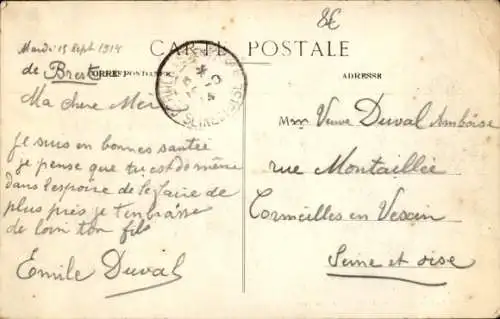 8€
Mardi 15 Sept 1914
CARTE POSTALE
de Brest
CORRESPONDANCE
ADRESSE
Ma chere Mer
je suis en bonnes santée
je pense que tu est de même
dans l'espoire de le faire de
plus près je t'embrasse
de loin ton fils
Emile Duval
Mme Veuve Duval Ambroise
rue Montaillée
Cormeilles en Vexin
Seine et oise